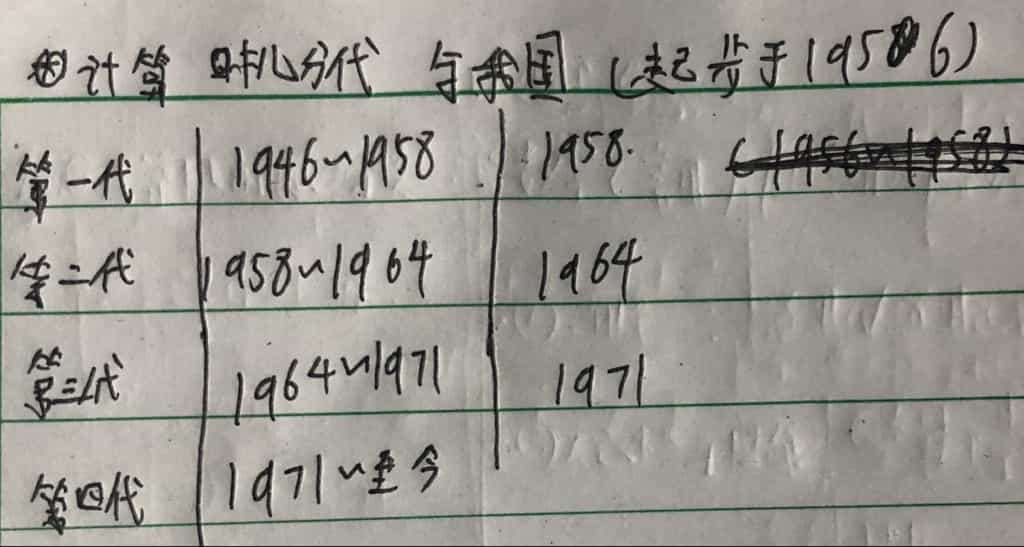 计算机分代 与我国 (起步于1956)
第一代 1946~1958 1958. (1956~1958)
第二代 1958~1964 1964
第三代 1964~1971 1971
第四代 1971~至今